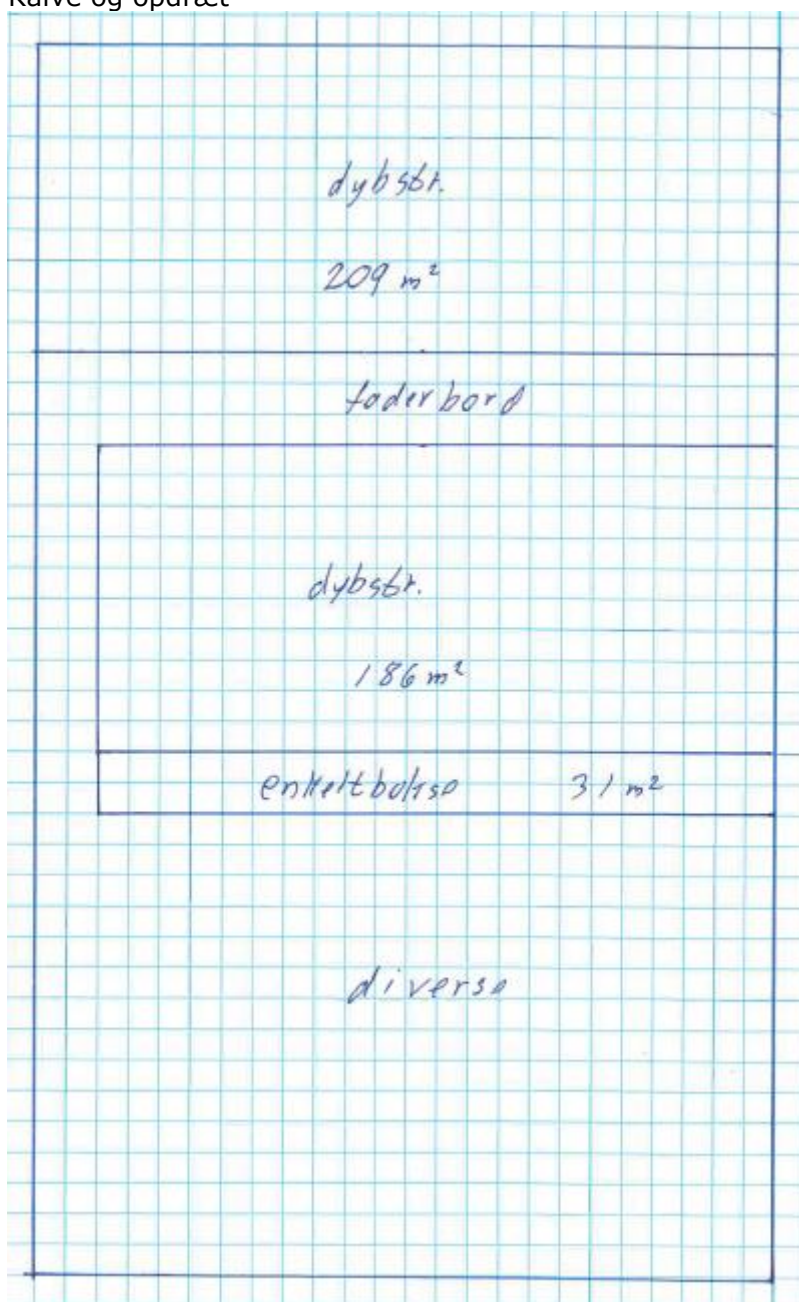 Kalve og opdræt
dybstr.
209 m²
foderbord
dybstr.
186 m²
enkeltbokse 31 m²
diverse